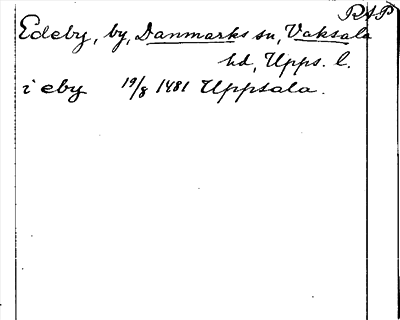 RAP
Edeby, by, Danmarks sn, Vaksala
hd, Upps. l.
i eby 19/8 1481 Uppsala.